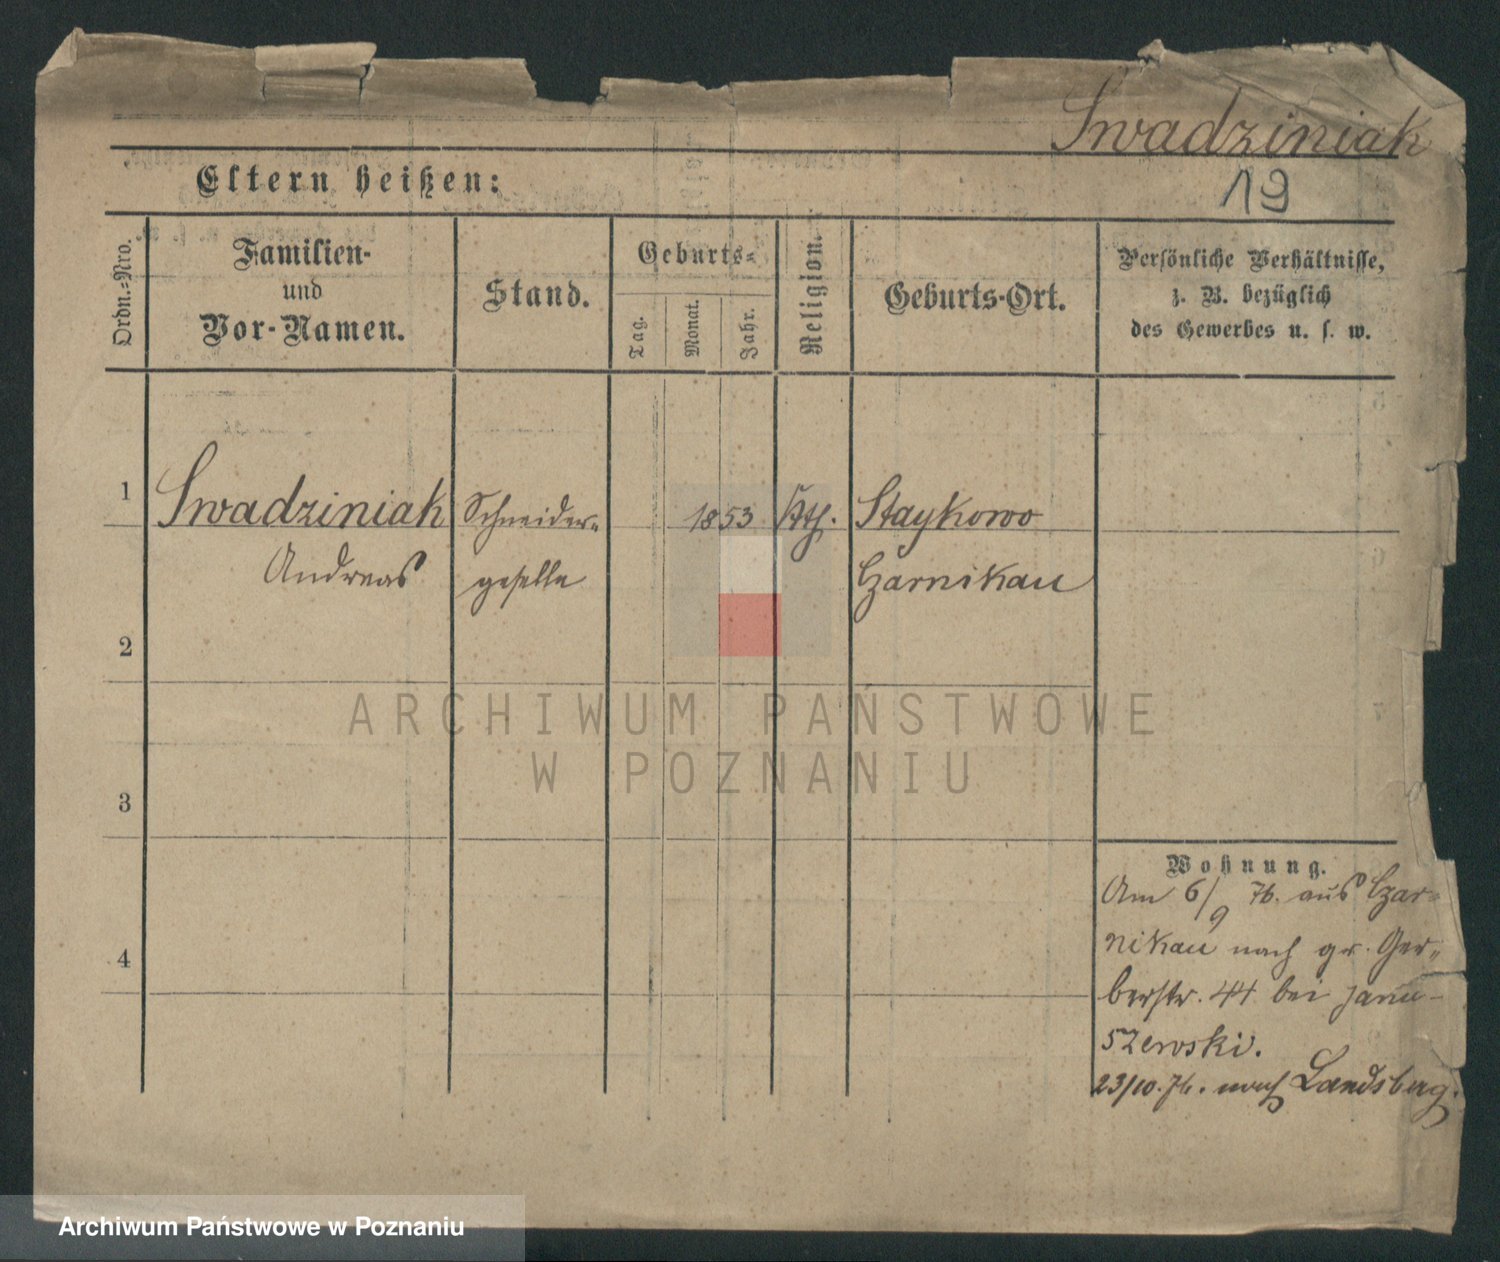 Swadziniak
Eltern heißen:
19
Ordn.-Nro.
Familien-
und
Vor-Namen.
Stand.
Geburts-
Tag.
Monat.
Jahr.
Religion.
Geburts-Ort.
Persönliche Verhältnisse,
z. B. bezüglich
des Gewerbes u. s. w.
1
Swadziniak
Schneider-
1853
Kth.
Staykowo
Andreas
geselle
Czarnikau
2
ARCHIWUM PAŃSTWOWE
W POZNANIU
3
Wohnung.
Am 6/9 76. aus Czar-
nikau nach gr. Ger-
4
berstr. 44 bei Janu-
szewski.
23/10. 76. nach Landsberg.
Archiwum Państwowe w Poznaniu